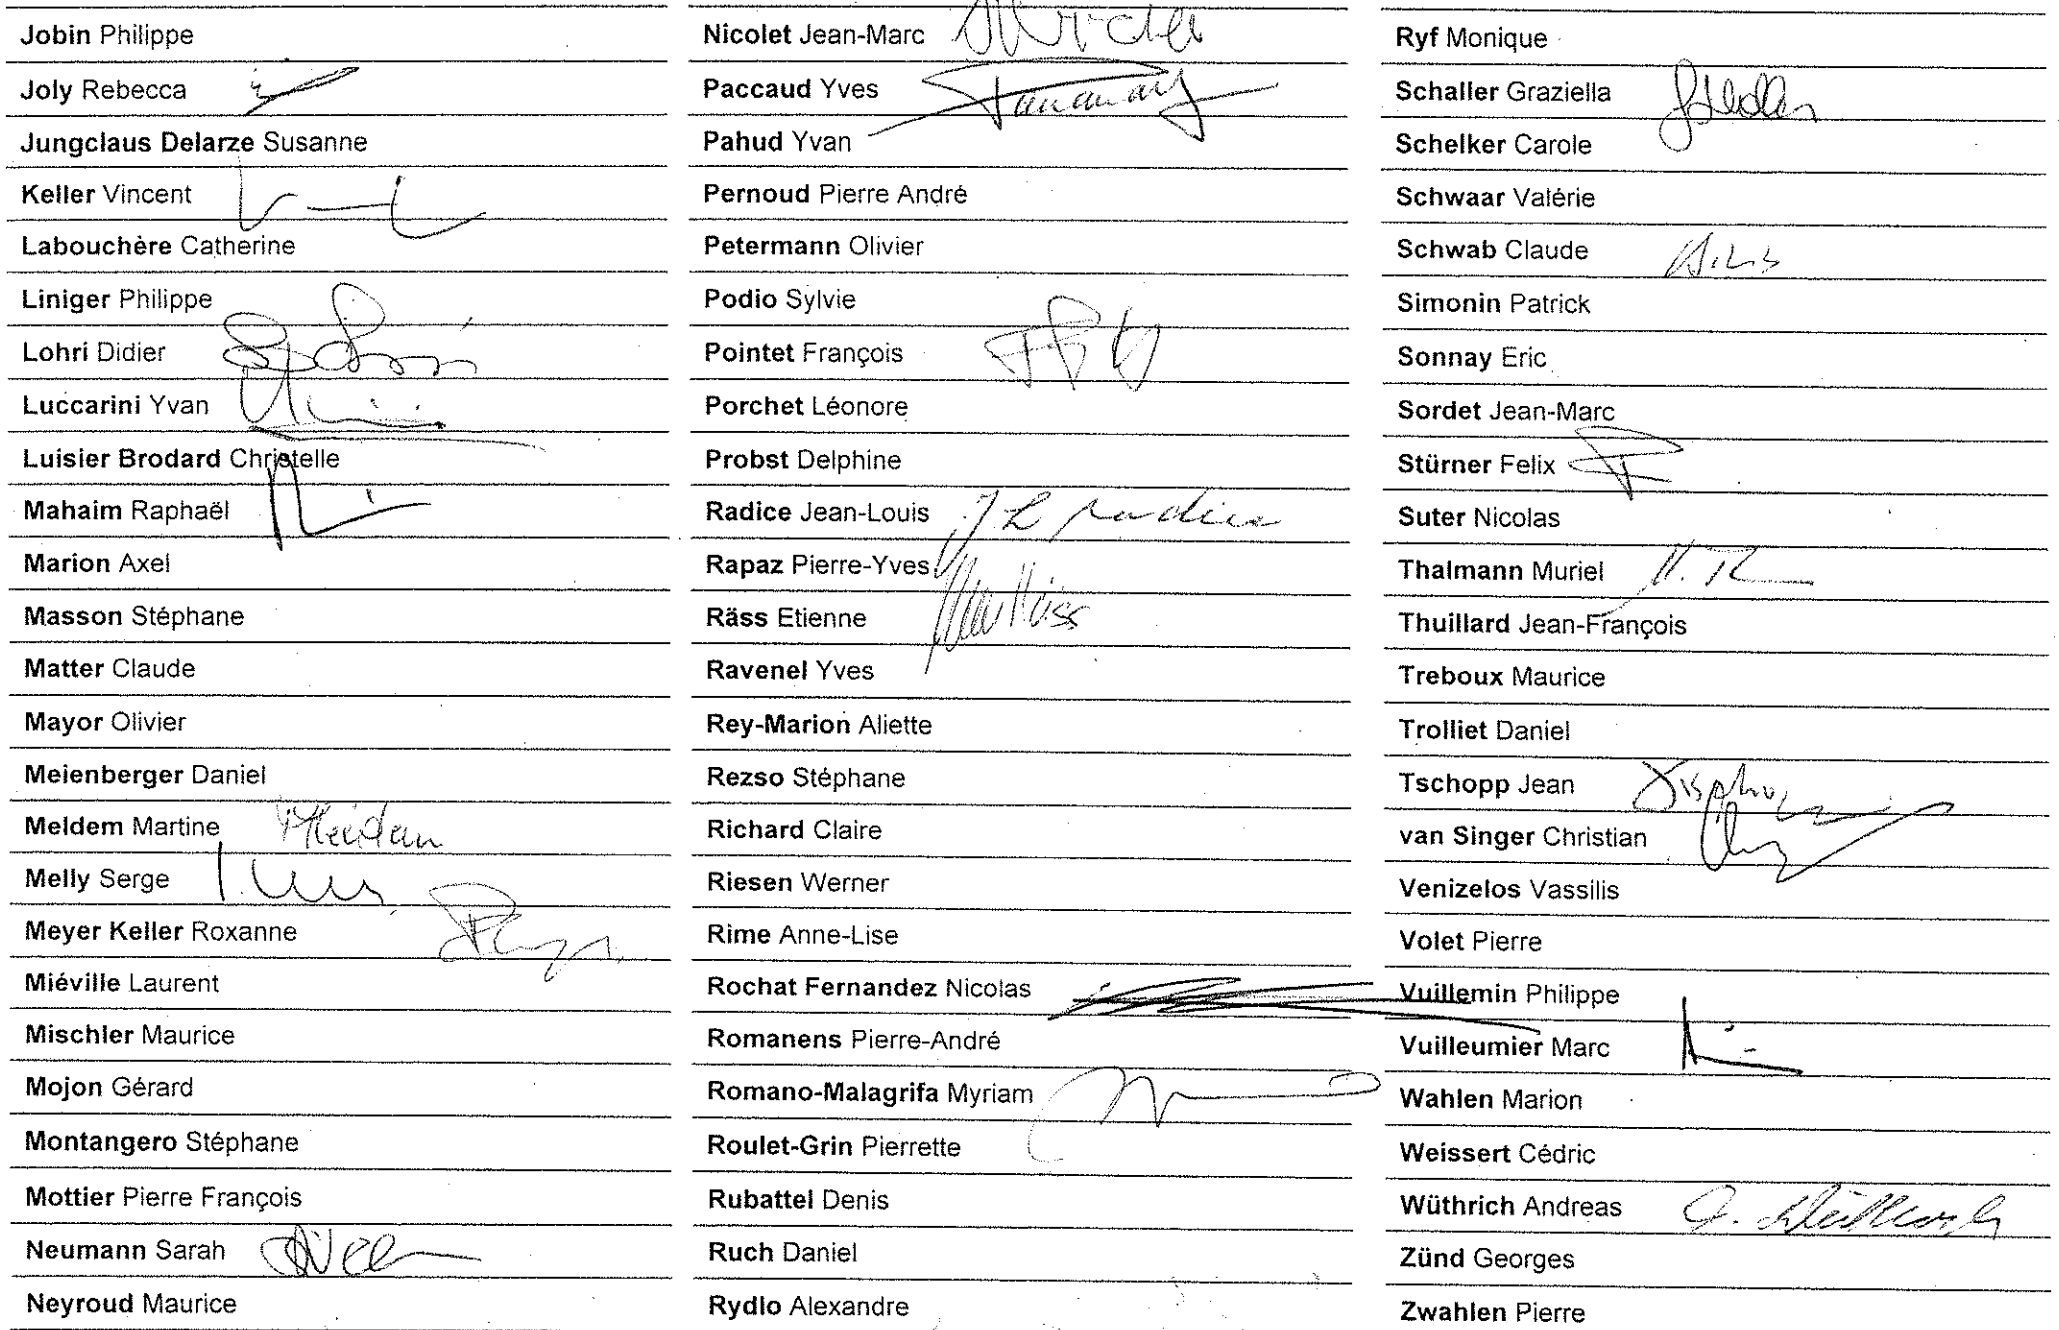 Jobin Philippe
Joly Rebecca
Jungclaus Delarze Susanne
Keller Vincent
Labouchère Catherine
Liniger Philippe
Lohri Didier
Luccarini Yvan
Luisier Brodard Christelle
Mahaim Raphaël
Marion Axel
Masson Stéphane
Matter Claude
Mayor Olivier
Meienberger Daniel
Meldem Martine
Melly Serge
Meyer Keller Roxanne
Miéville Laurent
Mischler Maurice
Mojon Gérard
Montangero Stéphane
Mottier Pierre François
Neumann Sarah
Neyroud Maurice
Nicolet Jean-Marc
Paccaud Yves
Pahud Yvan
Pernoud Pierre André
Petermann Olivier
Podio Sylvie
Pointet François
Porchet Léonore
Probst Delphine
Radice Jean-Louis J L Radice
Rapaz Pierre-Yves
Räss Etienne
Ravenel Yves
Rey-Marion Aliette
Rezso Stéphane
Richard Claire
Riesen Werner
Rime Anne-Lise
Rochat Fernandez Nicolas
Romanens Pierre-André
Romano-Malagrifa Myriam
Roulet-Grin Pierrette
Rubattel Denis
Ruch Daniel
Rydlo Alexandre
Ryf Monique
Schaller Graziella
Schelker Carole
Schwaar Valérie
Schwab Claude
Simonin Patrick
Sonnay Eric
Sordet Jean-Marc
Stürner Felix
Suter Nicolas
Thalmann Muriel
Thuillard Jean-François
Treboux Maurice
Trolliet Daniel
Tschopp Jean
van Singer Christian
Venizelos Vassilis
Volet Pierre
Vuillemin Philippe
Vuilleumier Marc
Wahlen Marion
Weissert Cédric
Wüthrich Andreas
Zünd Georges
Zwahlen Pierre